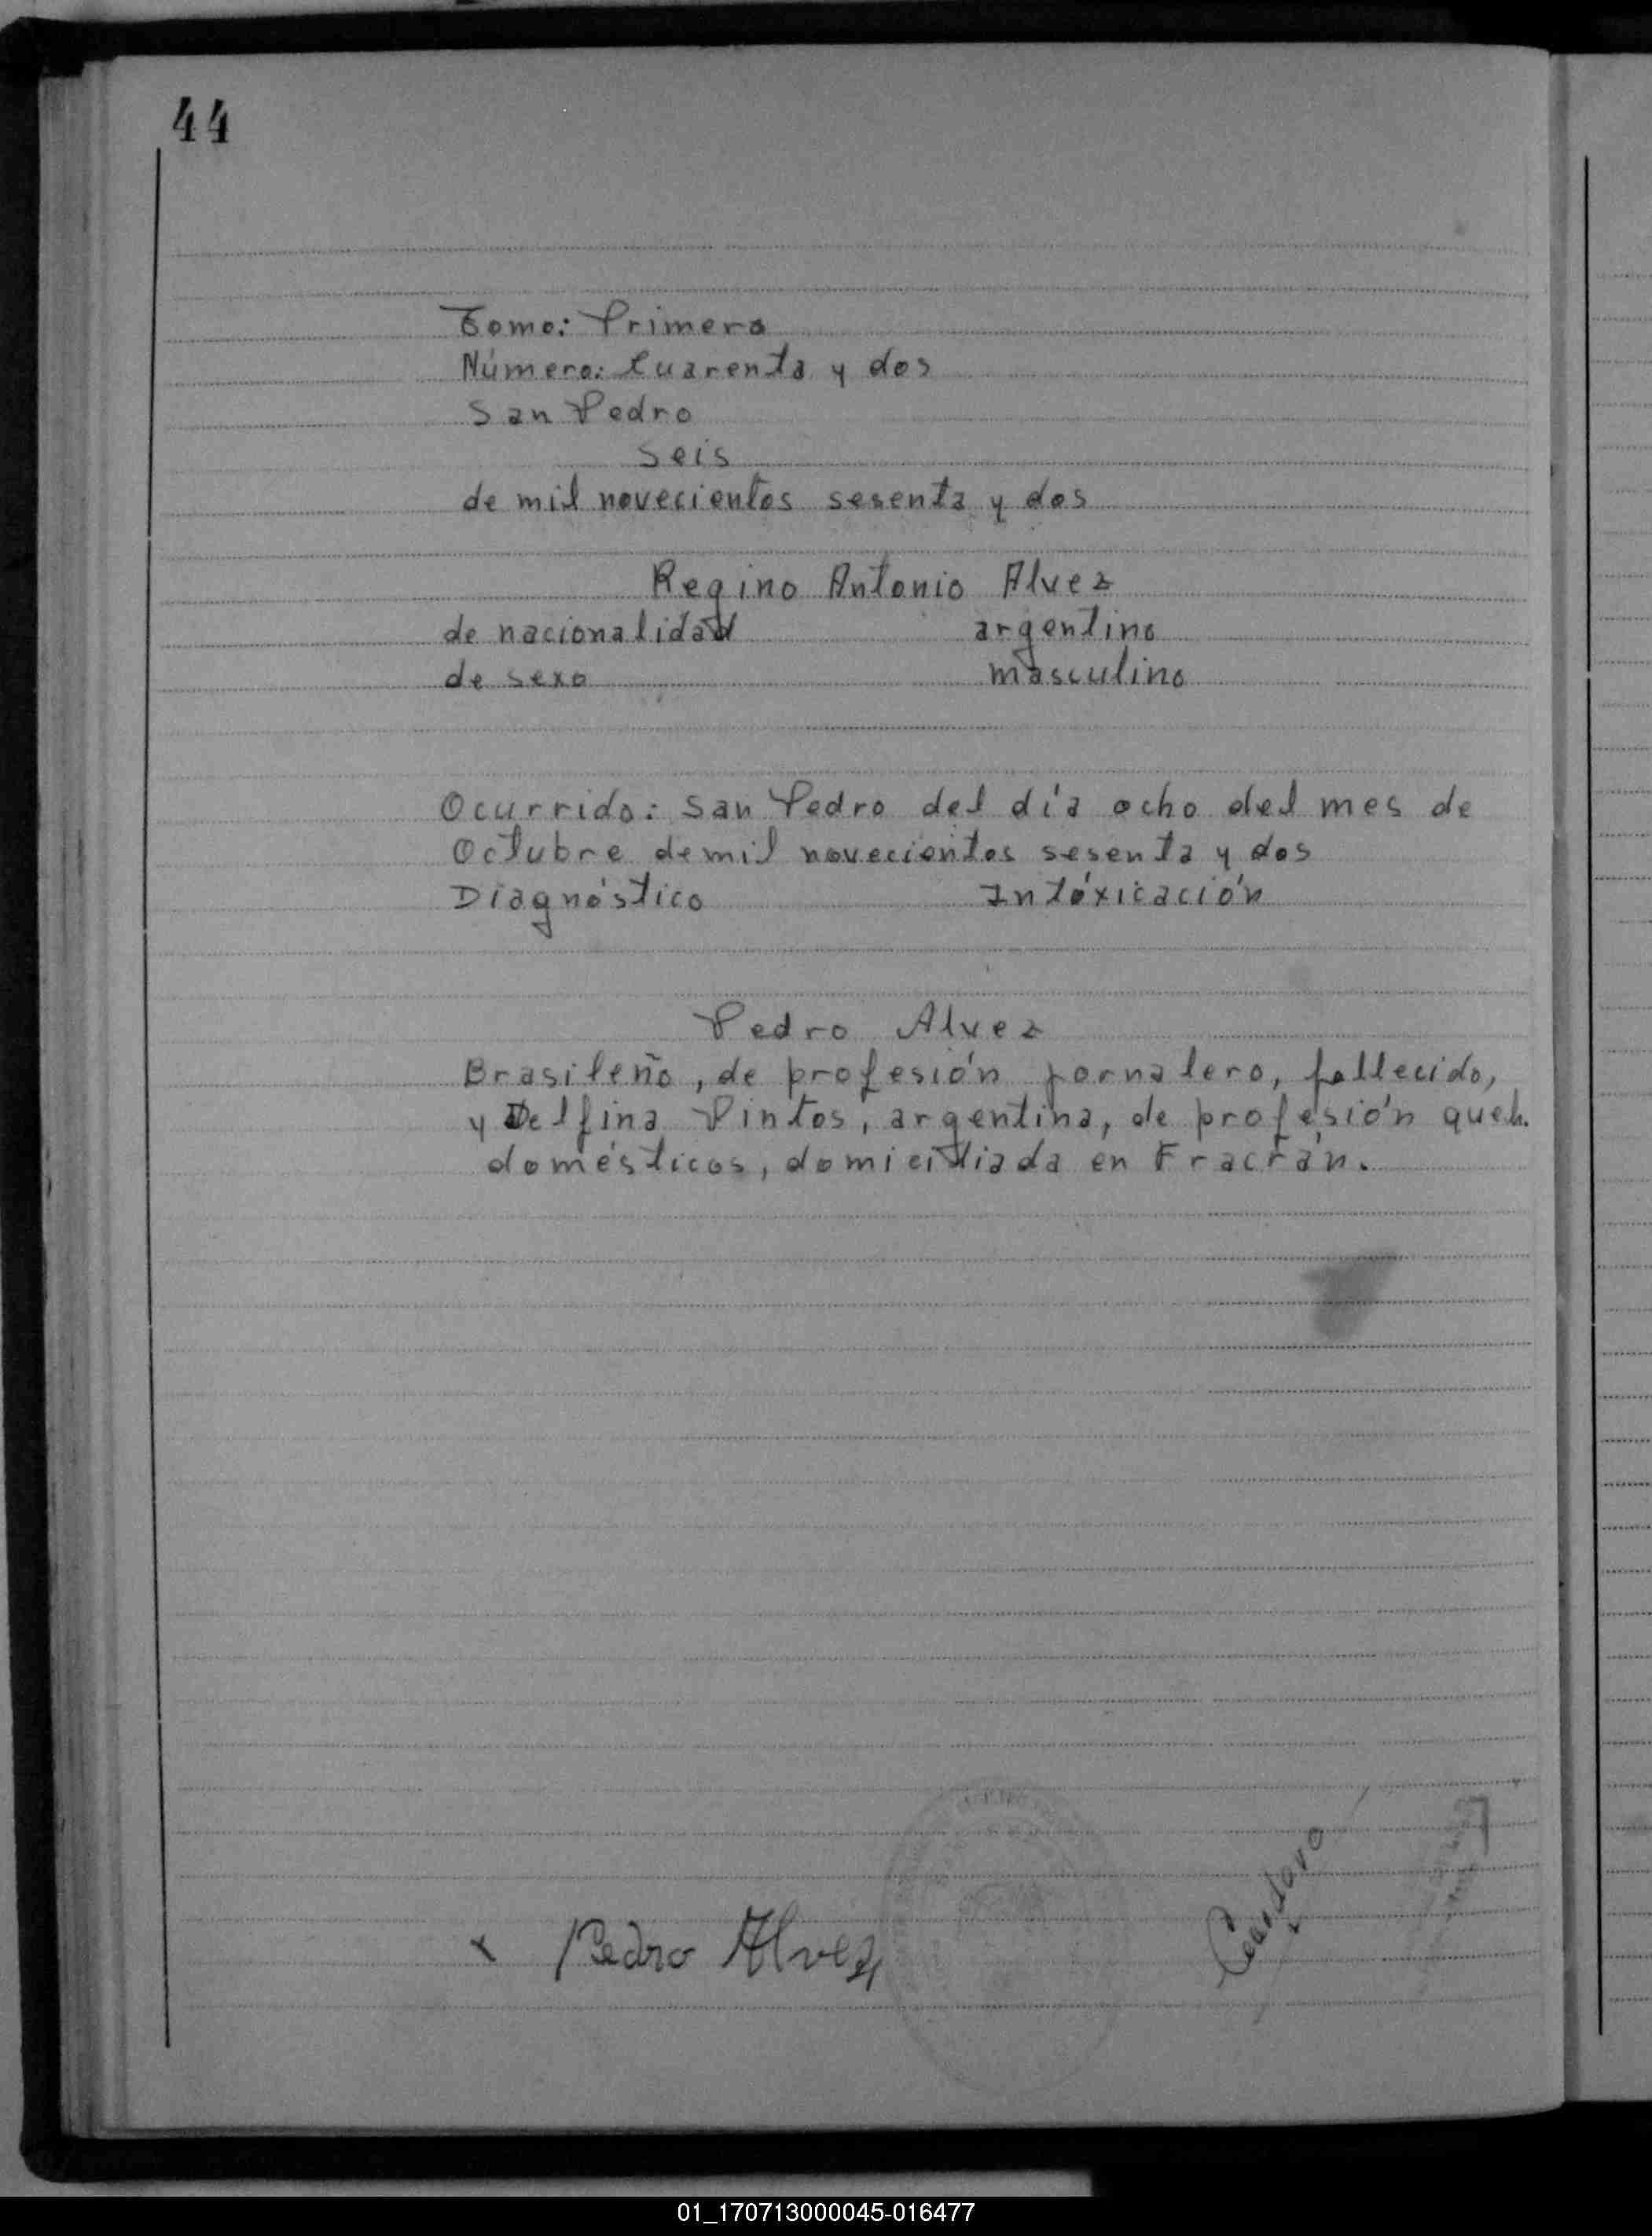 44
Tomo: Primero
Número: Cuarenta y dos
San Pedro
Seis
de mil novecientos sesenta y dos
Regino Antonio Alvez
de nacionalidad argentino
de sexo masculino
Ocurrido: San Pedro del día ocho del mes de
Octubre de mil novecientos sesenta y dos
Diagnóstico Intóxicación
Pedro Alvez
Brasileño, de profesión jornalero, fallecido,
y Delfina Pintos, argentina, de profesión queh.
domésticos, domiciliada en Fracrán.
x Pedro Alvez
01_170713000045-016477